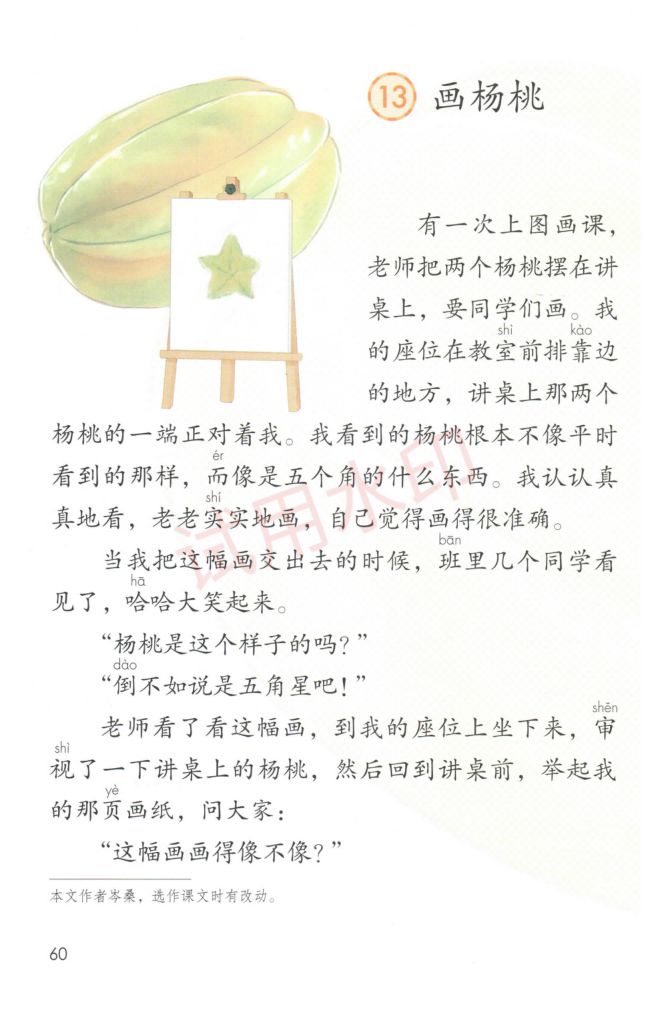 13 画杨桃
有一次上图画课，
老师把两个杨桃摆在讲
桌上，要同学们画。我
shì kào
的座位在教室前排靠边
的地方，讲桌上那两个
杨桃的一端正对着我。我看到的杨桃根本不像平时
ér
看到的那样，而像是五个角的什么东西。我认认真
shí
真地看，老老实实地画，自己觉得画得很准确。
bān
当我把这幅画交出去的时候，班里几个同学看
hā
见了，哈哈大笑起来。
“杨桃是这个样子的吗？”
dào
“倒不如说是五角星吧！”
shěn
老师看了看这幅画，到我的座位上坐下来，审
shì
视了一下讲桌上的杨桃，然后回到讲桌前，举起我
yè
的那页画纸，问大家：
“这幅画画得像不像？”
本文作者岑桑，选作课文时有改动。
60
试用水印